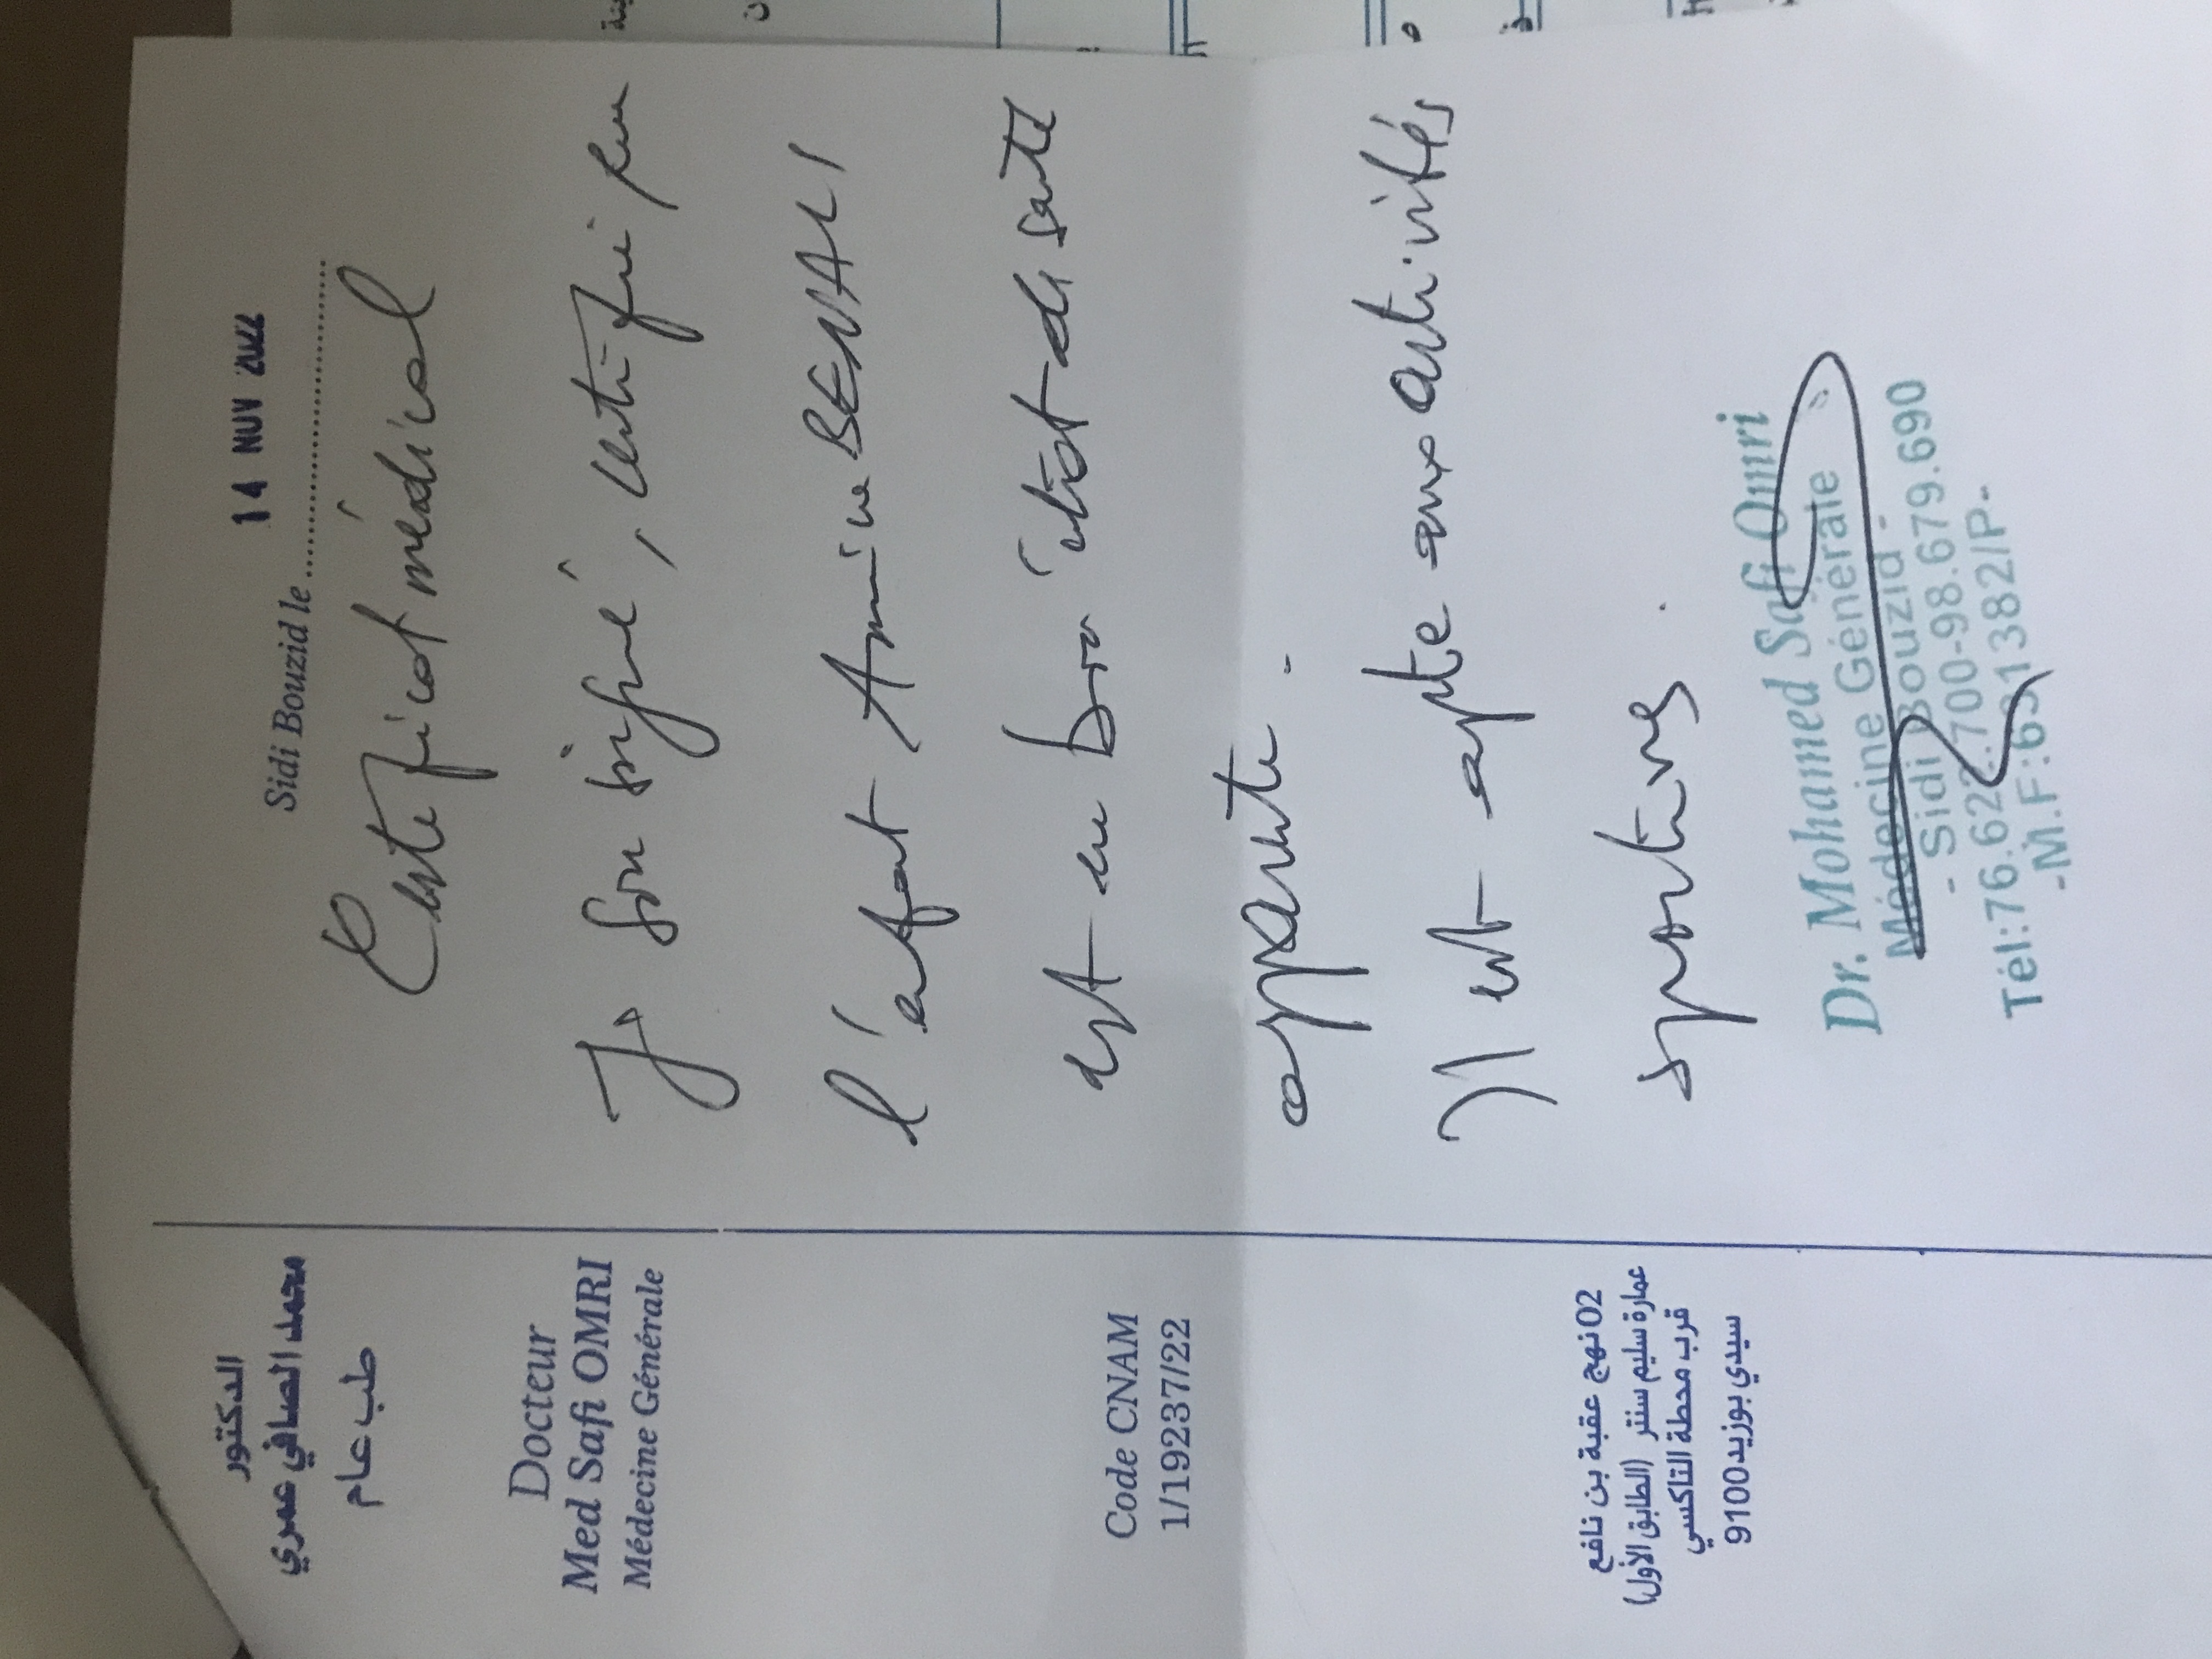 الدكتور
محمد الصافي عمري
طب عام
Docteur
Med Safi OMRI
Médecine Générale
Code CNAM
1/19237/22
02 نهج عقبة بن نافع
عمارة سليم سنتر (الطابق الأول)
قرب محطة التاكسي
سيدي بوزيد 9100
14 NOV 2022
Sidi Bouzid le
Certificat médical
Je sou signé, certifie que
l'enfant Amine BENALI
est en bon état de santé
apparente.
Il est apte aux activités
sportives.
Dr. Mohamed Safi Omri
Médecine Générale
- Sidi Bouzid -
Tél:76.622.700-98.679.690
-M.F:631382/P-